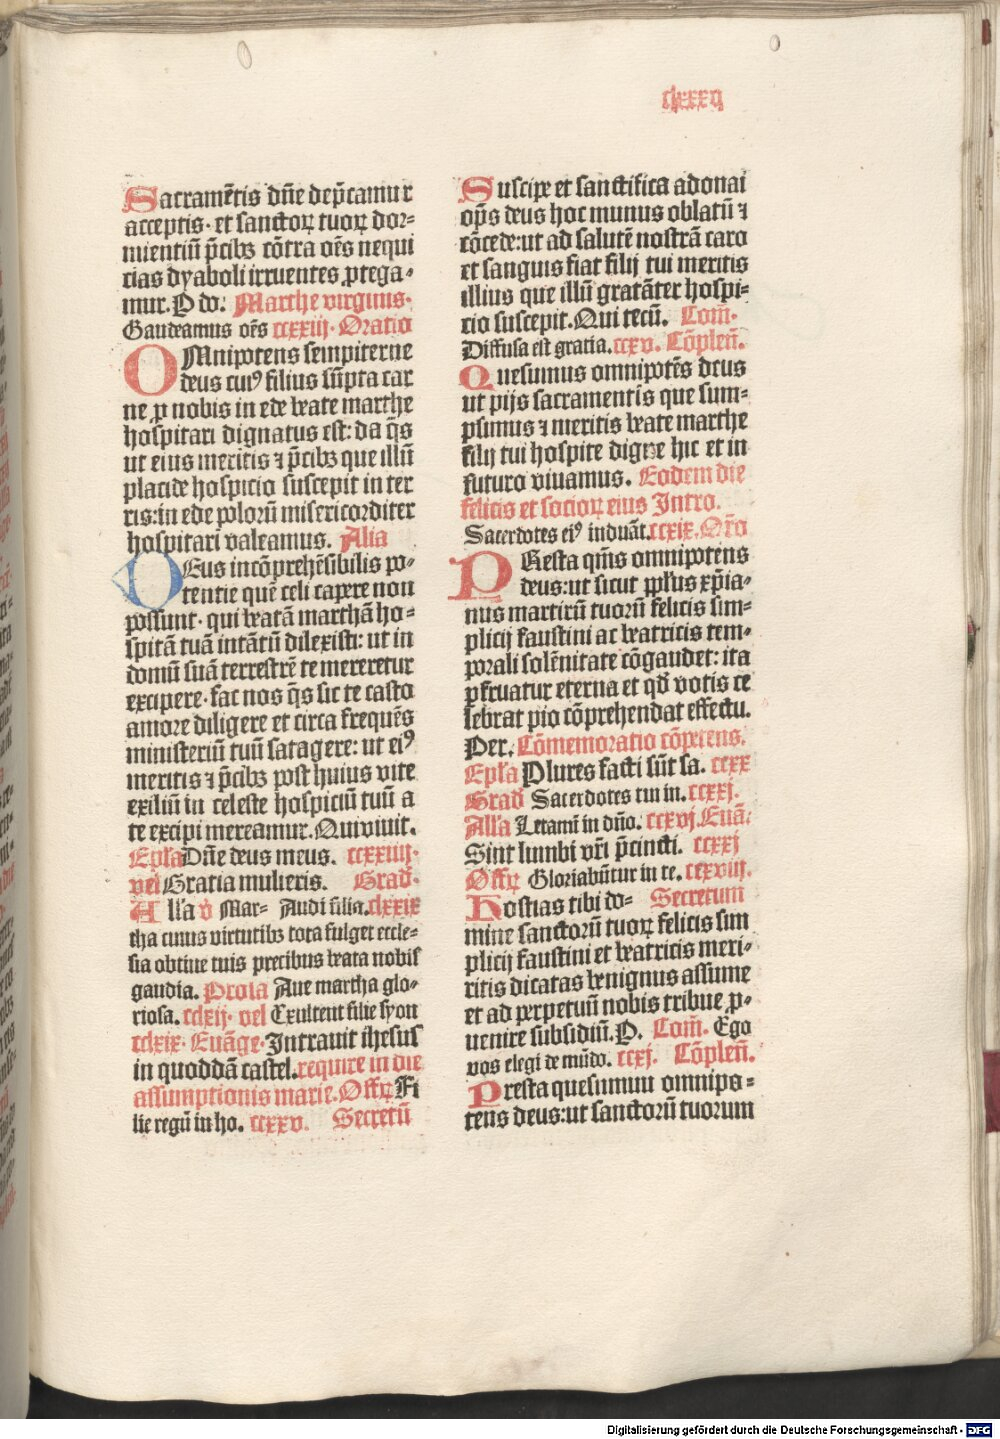 clxxxij
Sacramētis dn̄e dep̄camur
acceptis· et sanctoꝝ tuoꝝ dor⸗
mientiū p̄cibꝫ cōtra oēs nequi
cias dyaboli irruentes ꝓtega⸗
mur. P do. Marthe virginis.
Gaudeamus oēs ccxxiij. Oratio
OMnipotens sempiterne
deus cuiꝰ filius sūpta car
ne ꝓ nobis in ede beate marthe
hospitari dignatus est: da q̄s
ut eius meritis ⁊ p̄cibꝫ que illū
placide hospicio suscepit in ter
ris: in ede polorū misericorditer
hospitari valeamus. Alia
DEus incōprehēsibilis po⸗
tentie quē celi capere non
possunt· qui beatā marthā ho⸗
spitā tuā intātū dilexisti: ut in
domū suā terrestrē te mereretur
excipere· fac nos q̄s sic te casto
amore diligere et circa frequēs
ministeriū tuū satagere: ut eiꝰ
meritis ⁊ p̄cibꝫ post huius vite
exiliū in celeste hospiciū tuū a
te excipi mereamur. Qui viuit.
Epl'a Dn̄e deus meus. ccxxiiij.
vel Gratia mulieris. Grad̄.
All'a v̄ Mar⸗ Audi filia. clxxix
tha cuius virtutibꝫ tota fulget eccle⸗
sia obtine tuis precibus beata nobis
gaudia. Prosa Aue martha glo⸗
riosa. cclxij. vel Exultent filie syon
cclxix. Euāge. Intrauit ihesus
in quoddā castel. require in die
assumptionis marie. Offꝝ Fi
lie regū in ho. ccxxv. Secretū
Suscipe et sanctifica adonai
op̄s deus hoc munus oblatū ⁊
cōcede: ut ad salutē nostrā caro
et sanguis fiat filij tui meritis
illius que illū gratāter hospi⸗
cio suscepit. Qui tecū. Com̄.
Diffusa est gratia. ccxv. Cōplen̄.
Quesumus omnipotēs deus
ut pijs sacramentis que sum⸗
psimus ⁊ meritis beate marthe
filij tui hospite digne hic et in
futuro viuamus. Eodem die
felicis et socioꝝ eius Intro.
Sacerdotes eiꝰ induāt. ccxix. Or̄o
PResta qm̄s omnipotens
deus: ut sicut ppl'us xp̄ia⸗
nus martirū tuorū felicis sim⸗
plicij faustini ac beatricis tem⸗
porali solēnitate cōgaudet: ita
ꝑfruatur eterna et qd̄ votis ce
lebrat pio cōprehendat effectu.
Per. Cōmemoratio cōpetens.
Epl'a Plures facti sūt sa. ccxx
Grad̄ Sacerdotes tui in. ccxxj.
All'a Letamī in dn̄o. ccxvj. Euā.
Sint lumbi vr̄i p̄cincti. ccxxj
Offꝝ Gloriabūtur in te. ccxviij.
Hostias tibi do⸗ Secretum
mine sanctorū tuoꝝ felicis sim
plicij faustini et beatricis meri⸗
ritis dicatas benignus assume
et ad perpetuū nobis tribue ꝓ⸗
uenire subsidiū. P. Com̄. Ego
vos elegi de mūdo. ccxj. Cōplen̄.
Presta quesumum omnipo⸗
tens deus: ut sanctorū tuorum
Digitalisierung gefördert durch die Deutsche Forschungsgemeinschaft - DFG